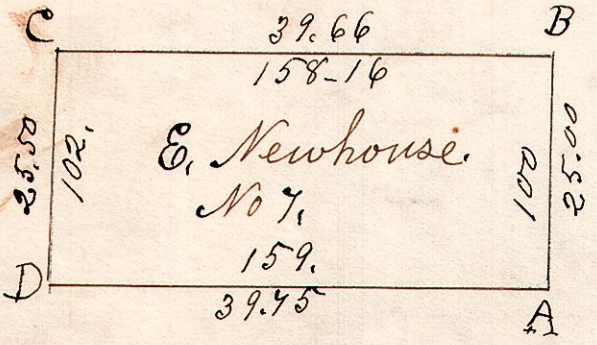 C
39.66
B
158-16
25.50
102.
E. Newhouse.
No 7.
100
25.00
159.
D
39.75
A